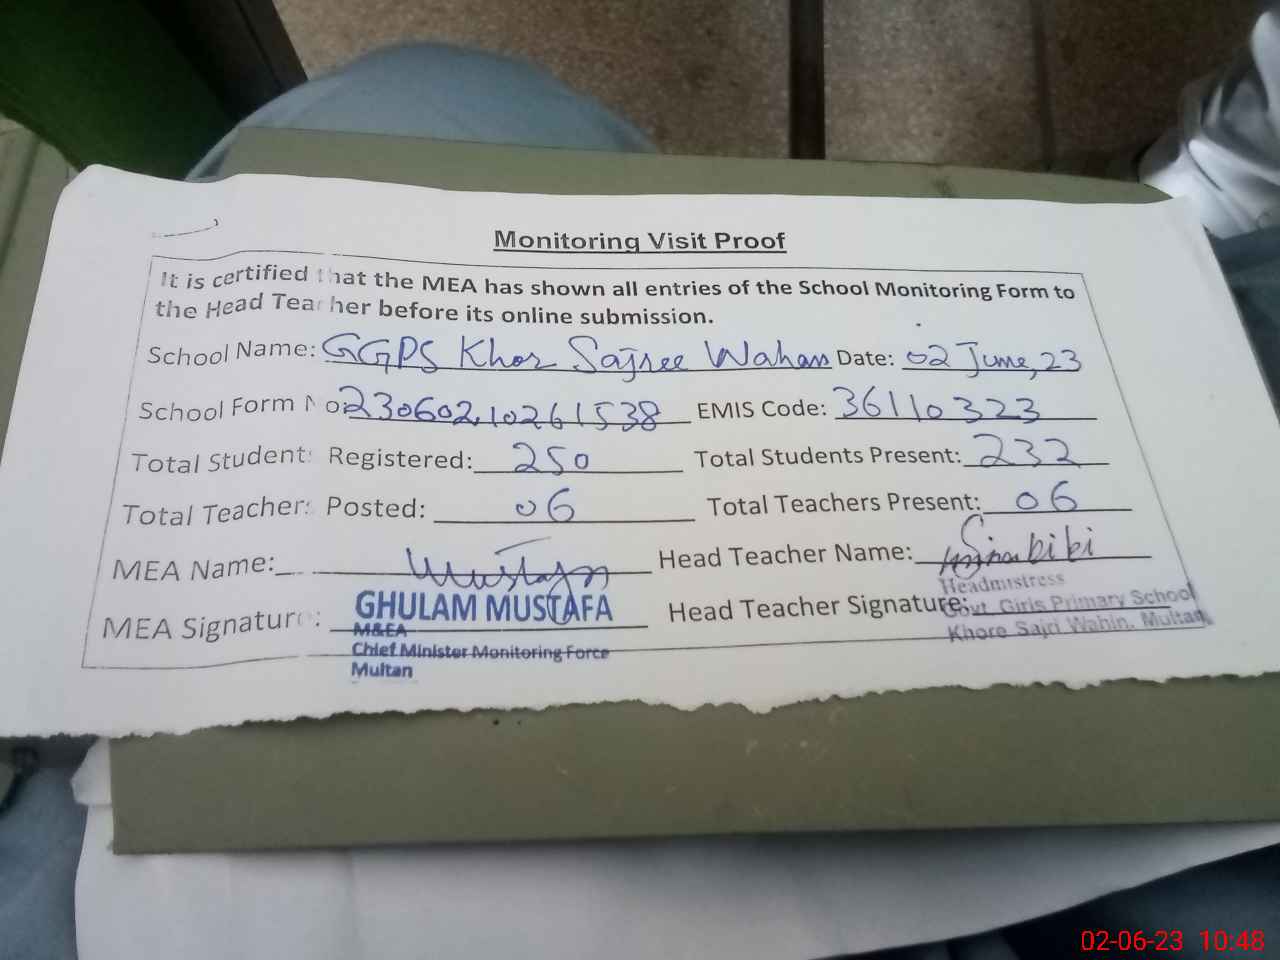 Monitoring Visit Proof
It is certified that the MEA has shown all entries of the School Monitoring Form to
the Head Teacher before its online submission.
School Name: GGPS Khor Sajree Wahan Date: 02 June, 23
School Form No: 23060210261538 EMIS Code: 36110323
Total Students Registered: 250 Total Students Present: 232
Total Teachers Posted: 06 Total Teachers Present: 06
MEA Name: Mustafa Head Teacher Name: bibi
MEA Signature: Head Teacher Signature:
GHULAM MUSTAFA
M&EA
Chief Minister Monitoring Force
Multan
Headmistress
Govt. Girls Primary School
Khore Sajri Wahin, Multan
02-06-23 10:48